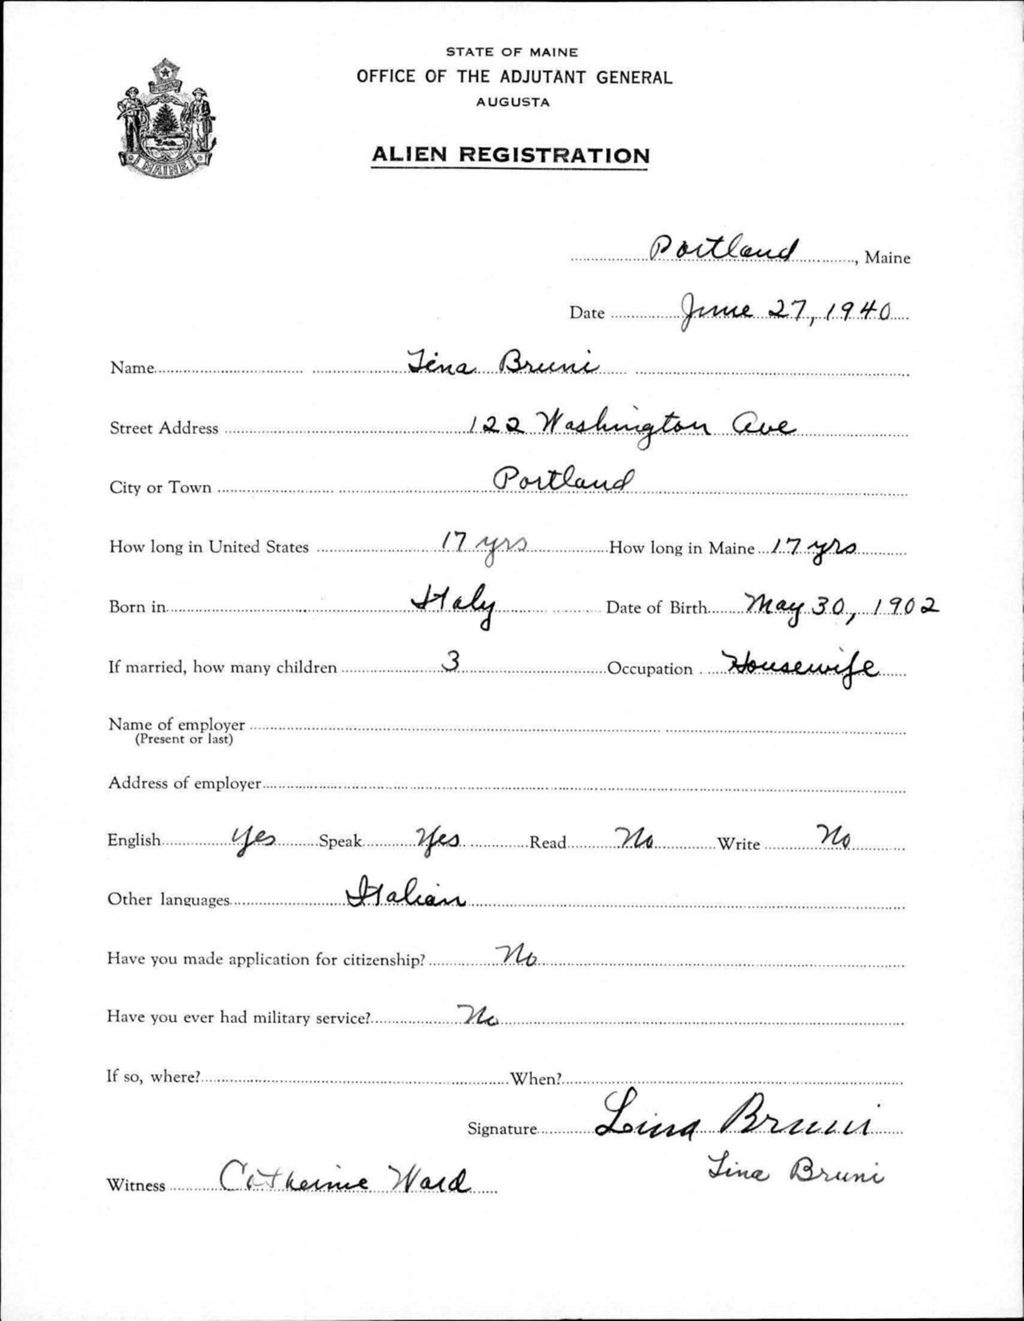 STATE OF MAINE
OFFICE OF THE ADJUTANT GENERAL
AUGUSTA
ALIEN REGISTRATION
MAINE
Portland, Maine
Date June 27, 1940
Name Tina Bruni
Street Address 122 Washington Ave
City or Town Portland
How long in United States 17 yrs How long in Maine 17 yrs
Born in Italy Date of Birth May 30, 1902
If married, how many children 3 Occupation Housewife
Name of employer
(Present or last)
Address of employer
English Yes Speak Yes Read No Write No
Other languages Italian
Have you made application for citizenship? No
Have you ever had military service? No
If so, where? When?
Signature Lina Bruni
Witness Catherine Ward Tina Bruni